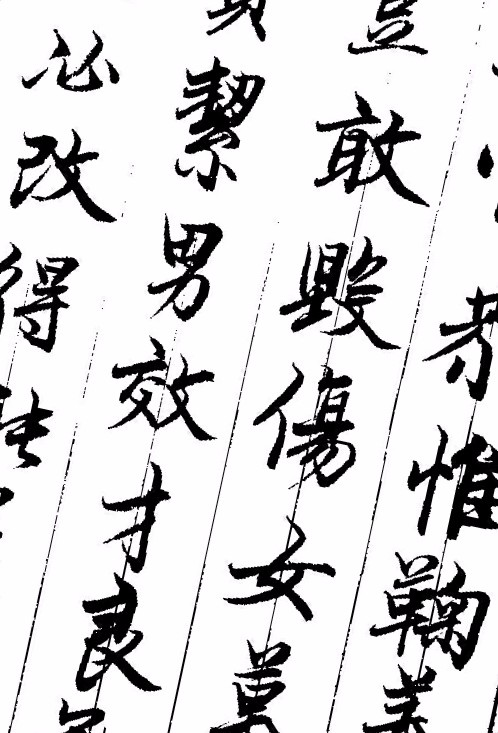 惟鞠養
豈敢毀傷女
絜男效才良
必改得能